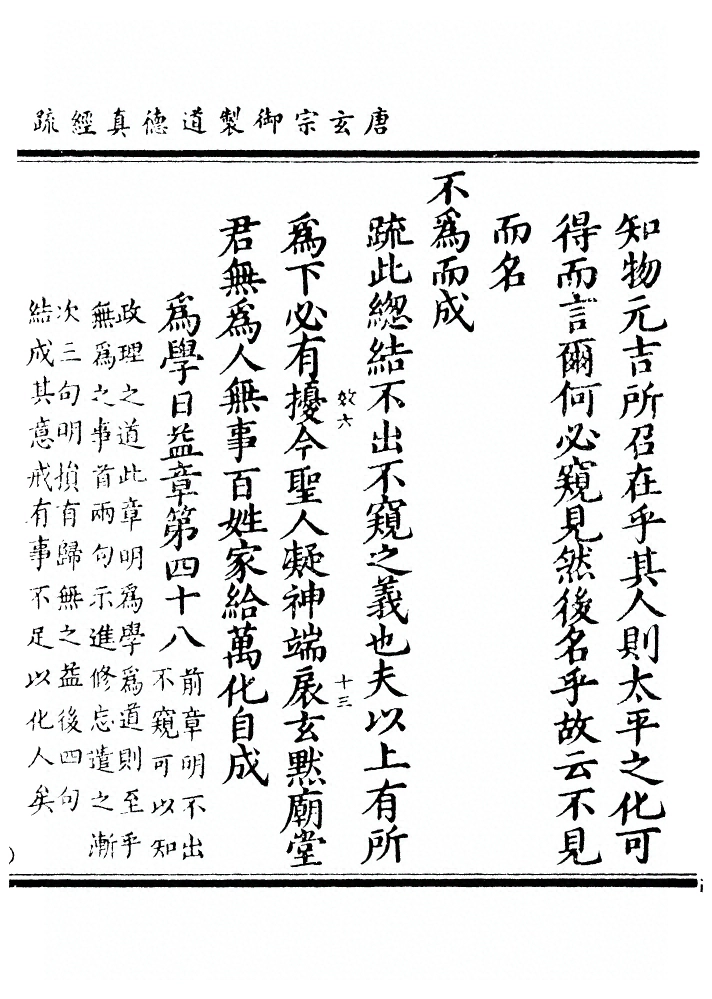 唐玄宗御製道德真經疏
知物元吉所召在乎其人則太平之化可
得而言爾何必窺見然後名乎故云不見
而名
不爲而成
疏此緫結不出不窺之義也夫以上有所
爲下必有擾今聖人凝神端扆玄默廟堂
效六
十三
君無爲人無事百姓家給萬化自成
爲學日益章第四十八
前章明不出
不窺可以知
政理之道此章明爲學爲道則至乎
無爲之事首兩句示進修忘遣之漸
次三句明損有歸無之益後四句
結成其意戒有事不足以化人矣